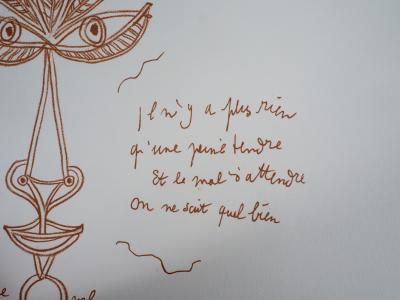 il n'y a plus rien
qu'une peine tendre
Et le mal d'attendre
on ne sait quel bien